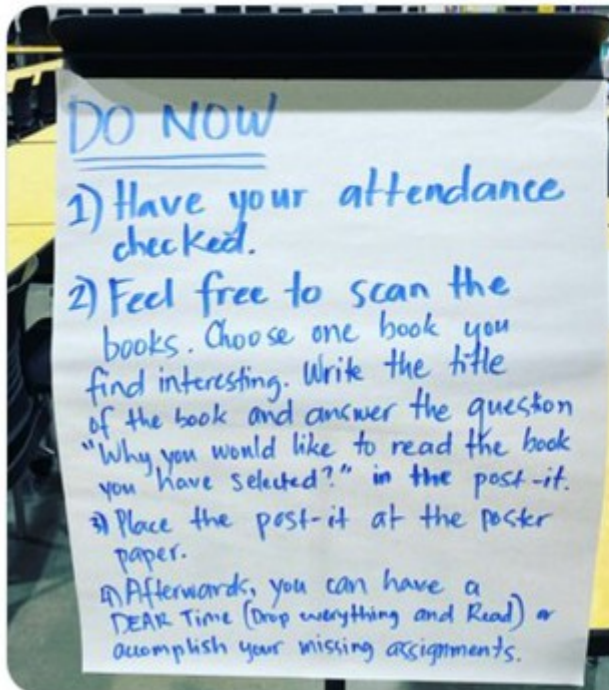 DO NOW
1) Have your attendance
checked.
2) Feel free to scan the
books. Choose one book you
find interesting. Write the title
of the book and answer the question
"Why you would like to read the book
you have selected?" in the post-it.
3) Place the post-it at the poster
paper.
4) Afterwards, you can have a
DEAR Time (Drop everything and Read) or
accomplish your missing assignments.